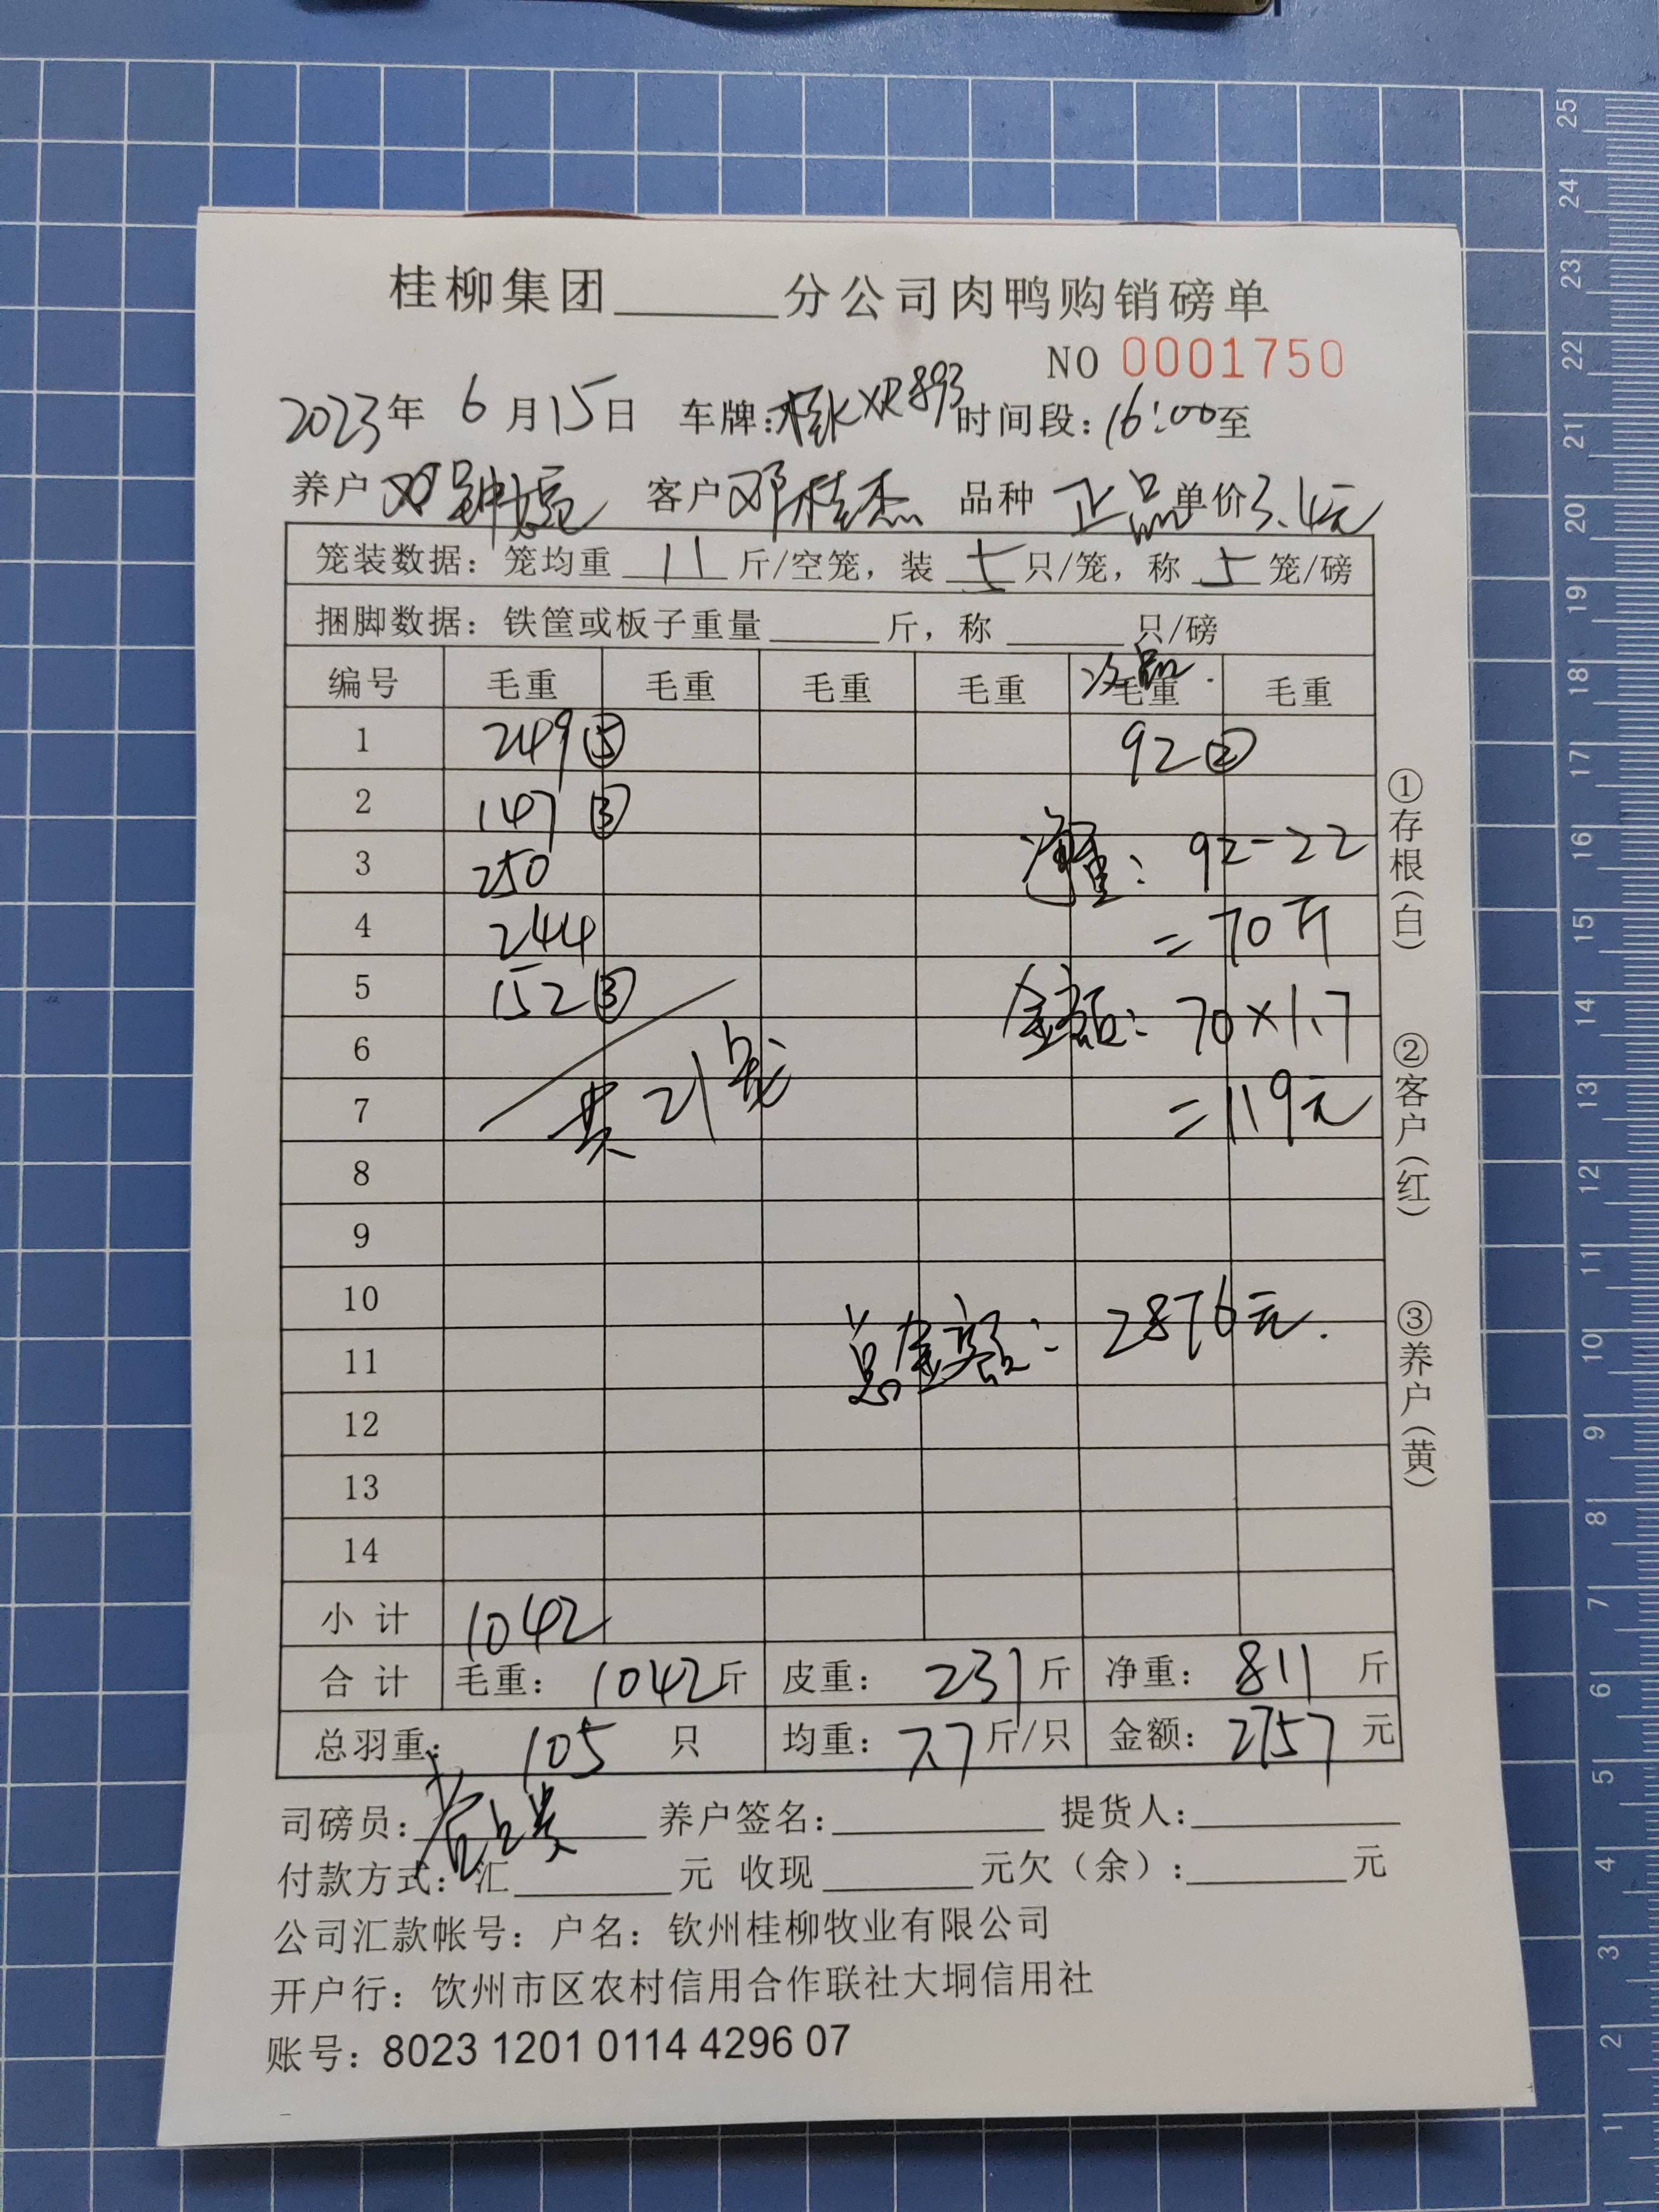 桂柳集团______分公司肉鸭购销磅单
NO 0001750
2023年 6月15日 车牌:桂KXR893 时间段:16:00至
养户 邓钟 客户 邓桂杰 品种 正品 单价3.4元
笼装数据：笼均重 11 斤/空笼，装 5 只/笼，称 5 笼/磅
捆脚数据：铁筐或板子重量______斤，称______只/磅
次品
编号 毛重 毛重 毛重 毛重 毛重 毛重
1 249⑤ 92②
2 147③
3 250 净重：92-22
4 244 =70斤
5 152③ 金额：70×1.7
6 共21笼
7 =119元
8
9
10
11 总金额：2876元.
12
13
14
小计 1042
合计 毛重：1042斤 皮重：231斤 净重：811斤
总羽重：105只 均重：7.7斤/只 金额：2757元
司磅员: 养户签名:______ 提货人:______
付款方式：汇______元 收现______元欠（余）:______元
公司汇款帐号：户名：钦州桂柳牧业有限公司
开户行：饮州市区农村信用合作联社大垌信用社
账号：8023 1201 0114 4296 07
①存根（白）
②客户（红）
③养户（黄）
25
24
23
22
21
20
19
18
17
16
15
14
13
12
11
10
9
8
7
6
5
4
3
2
1